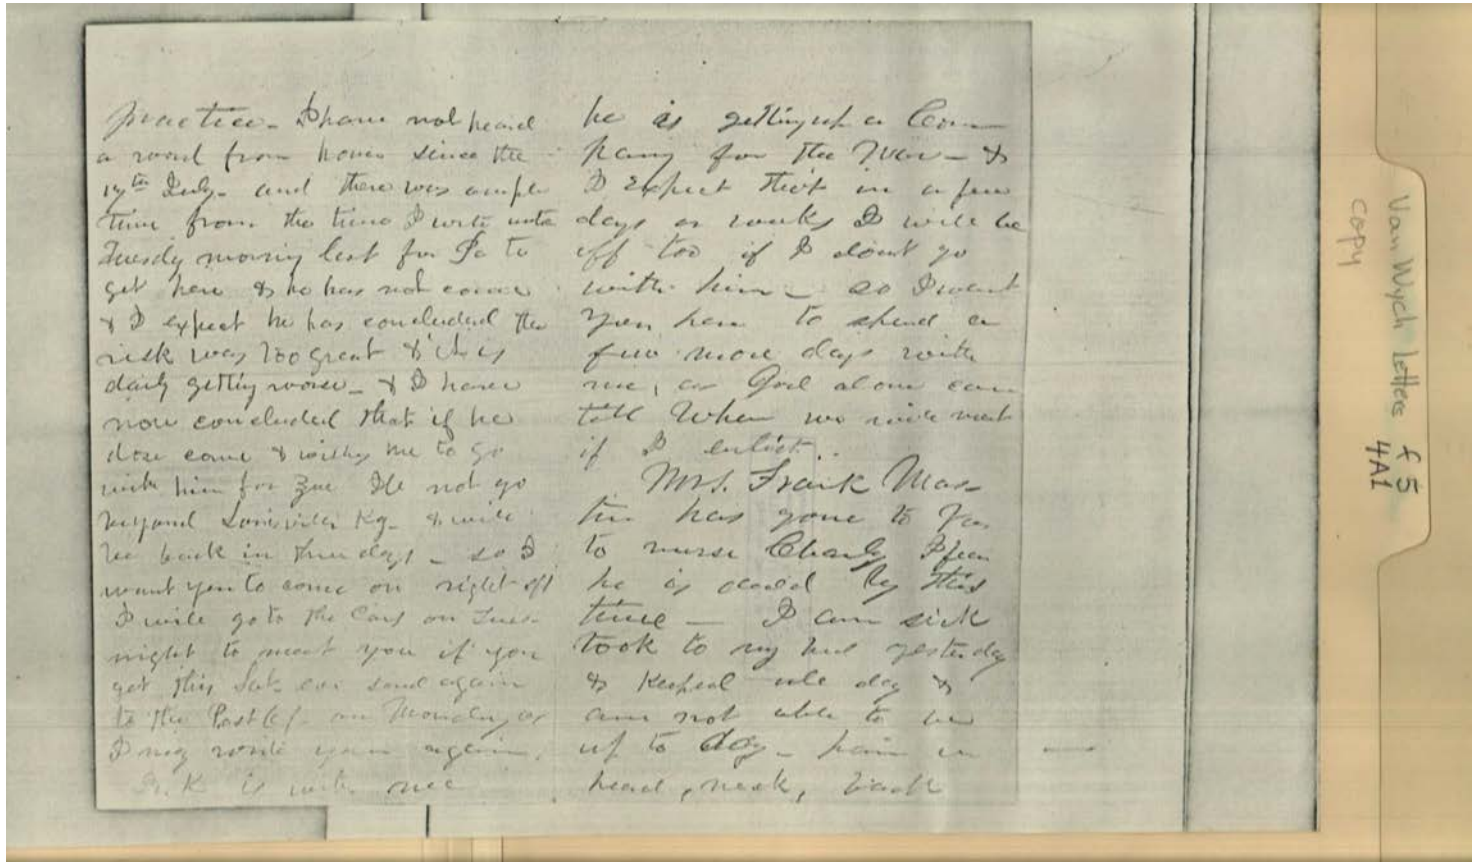 practice - I have not heard
a word from home since the
17th July - and there was ample
time from the time I write unto
Tuesdy morning last for Pa to
get here & he has not come
& I expect he has concluded the
risk was too great & it is
daily getting worse - & I have
now concluded that if he
dose come & wishes me to go
with him for Zue Ile not go
beyond Louisville Ky - & will
be back in three days - so I
want you to come on right off
I will go to the Cars on Tues-
night to meet you if you
get this Sat. eve send again
to the Post Of. on Monday as
I may write you again.
K is with me
he is getting up a Com
pany for the War - &
I expect that in a few
days or weeks I will be
off too if I dont go
with him - so I want
you here to spend a
few more days with
me, as God alone can
tell When we will meet
if I enlist..
Mrs. Frank Mar-
tin has gone to Va
to nurse Charly I fear
he is dead by this
time - I am sick
took to my bed yesterday
& keped all day &
am not able to be
up to day - pain in
head, neck, back
Van Wych Letters f 5
copy 4A1